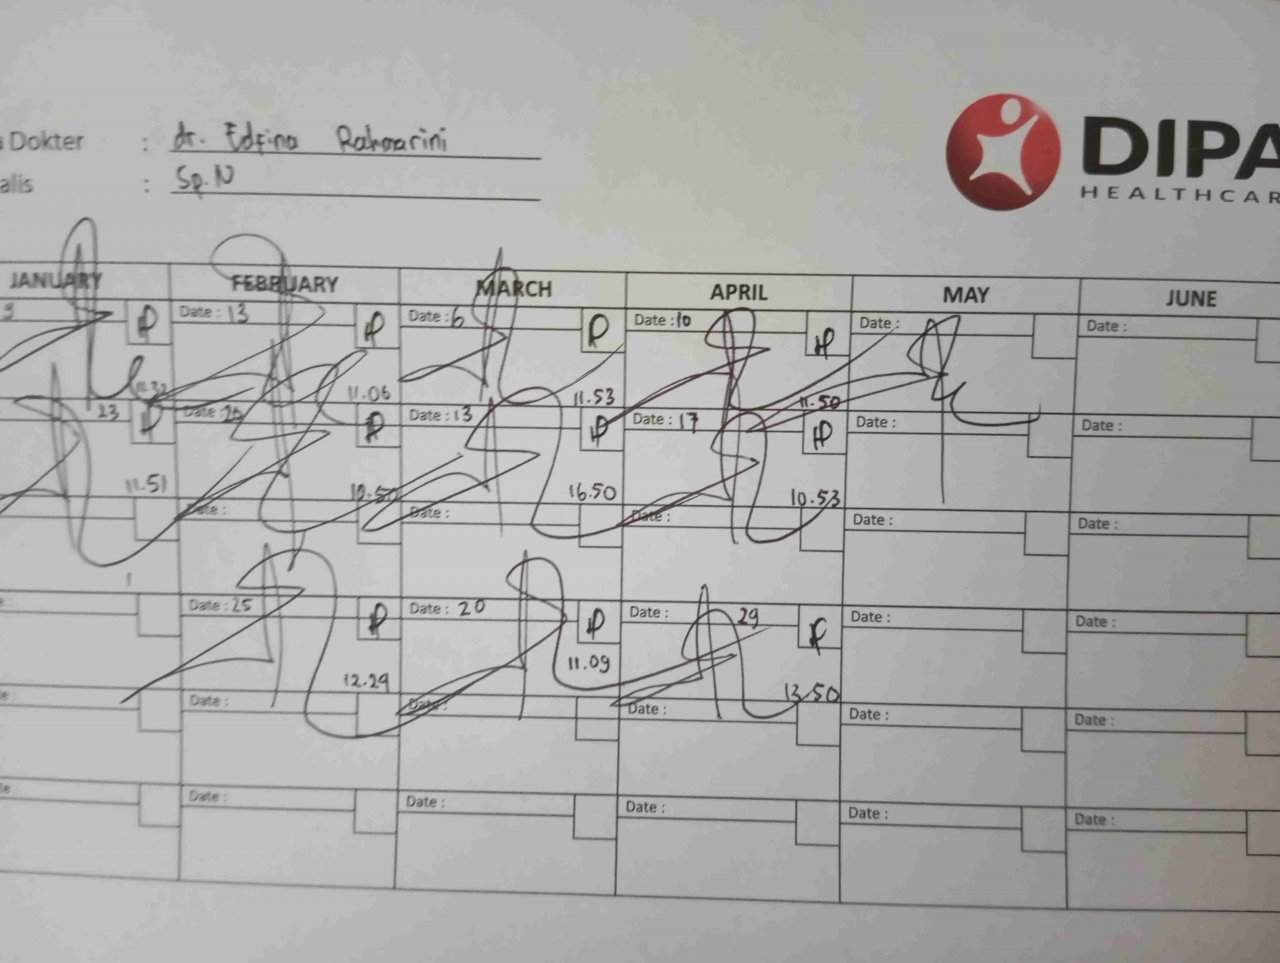 Dokter : dr. Edfina Rahmarini
alis : Sp.N
DIPA
HEALTHCAR
JANUARY FEBRUARY MARCH APRIL MAY JUNE
9 Date : 13 Date : 6 Date : 10 Date : Date :
11.32 11.06 11.53 11.50
23 Date : Date : 13 Date : 17 Date : Date :
11.51 10.50 16.50 10.53
Date : Date : Date : Date : Date :
Date : 25 Date : 20 Date : 29 Date : Date :
12.29 11.09 13.50
Date : Date : Date : Date : Date :
Date : Date : Date : Date : Date :